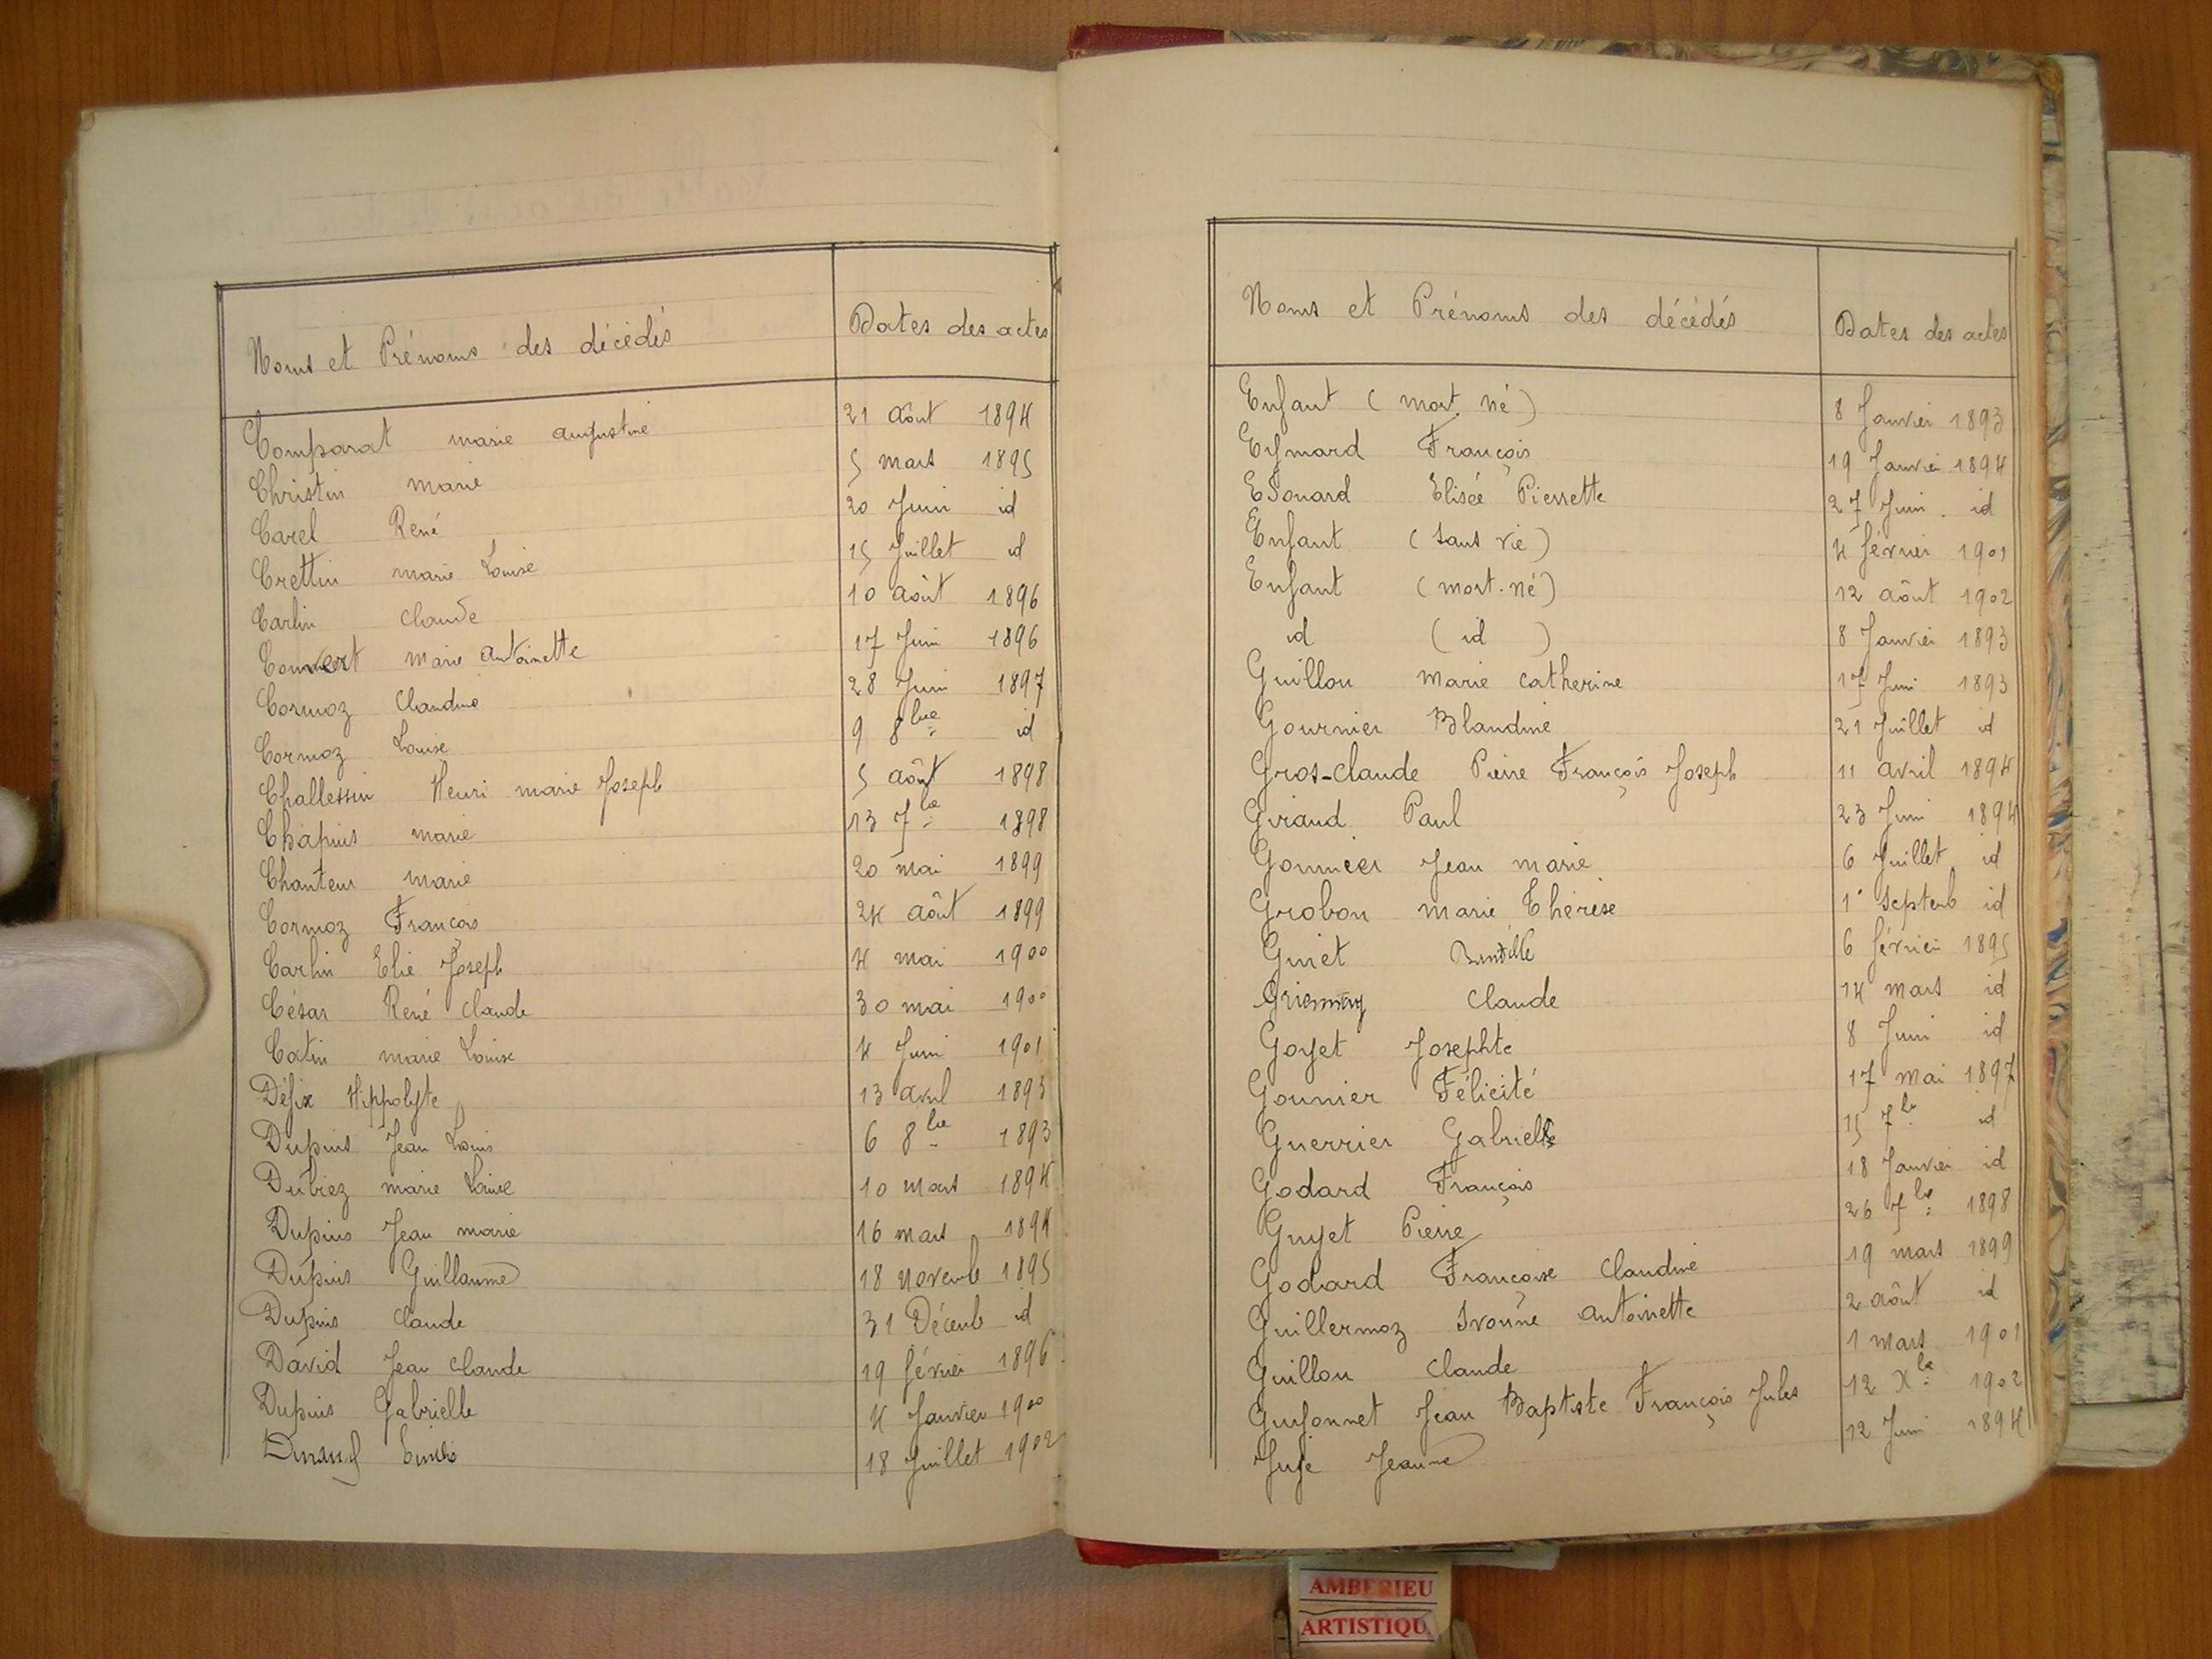 Noms et Prénoms des décédés Dates des actes
Comparat marie augustine 21 août 1894
Christin marie 5 mars 1895
Carel René 20 Juin id
Crettin marie Louise 15 Juillet id
Carlin claude 10 août 1896
Convert marie antoinette 17 Juin 1896
Cormoz Claudine 28 Juin 1897
Cormoz Louise 9 8bre id
Challessin Henri marie Joseph 5 août 1898
Chapuis marie 13 7bre 1898
Chanteur marie 20 mai 1899
Cormoz François 24 août 1899
Carlin Elie Joseph 4 mai 1900
César René Claude 30 mai 1900
Catin marie Louise 4 Juin 1901
Défix Hippolyte 13 avril 1893
Dupuis Jean Louis 6 8bre 1893
Dubiez marie Louise 10 mars 1894
Dupuis Jean marie 16 mars 1894
Dupuis Guillaume 18 novemb 1895
Dupuis Claude 31 Décemb id
David Jean claude 19 février 1896
Dupuis Gabrielle 4 Janvier 1900
18 Juillet 1902
Noms et Prénoms des décédés Dates des actes
Enfant (mort. né) 8 Janvier 1893
Eymard François 19 Janvier 1894
Edouard Elisée Pierrette 27 Juin id
Enfant (sans vie) 4 février 1901
Enfant (mort-né) 12 août 1902
id (id) 8 Janvier 1893
Guillou marie catherine 17 Juin 1893
Gournier Blandine 21 Juillet id
Gros-claude Pierre François Joseph 11 avril 1894
Giraud Paul 23 Juin 1894
Gounier Jean marie 6 Juillet id
Grobon marie Thérèse 1er Septemb id
Guiet 6 février 1895
Claude 14 mars id
Goyet Josephte 8 Juin id
Gounier Félicité 17 mai 1897
Guerrier Gabrielle 15 7bre id
Godard François 18 Janvier id
Guyet Pierre 26 7bre 1898
Godard Françoise Claudine 19 mars 1899
Guillermoz Ivonne antoinette 2 août id
Guillou Claude 1 mars 1901
Guyonnet Jean Baptiste François Jules 12 Xbre 1902
Juge Jeanne 12 Juin 1894
AMBERIEU
ARTISTIQU